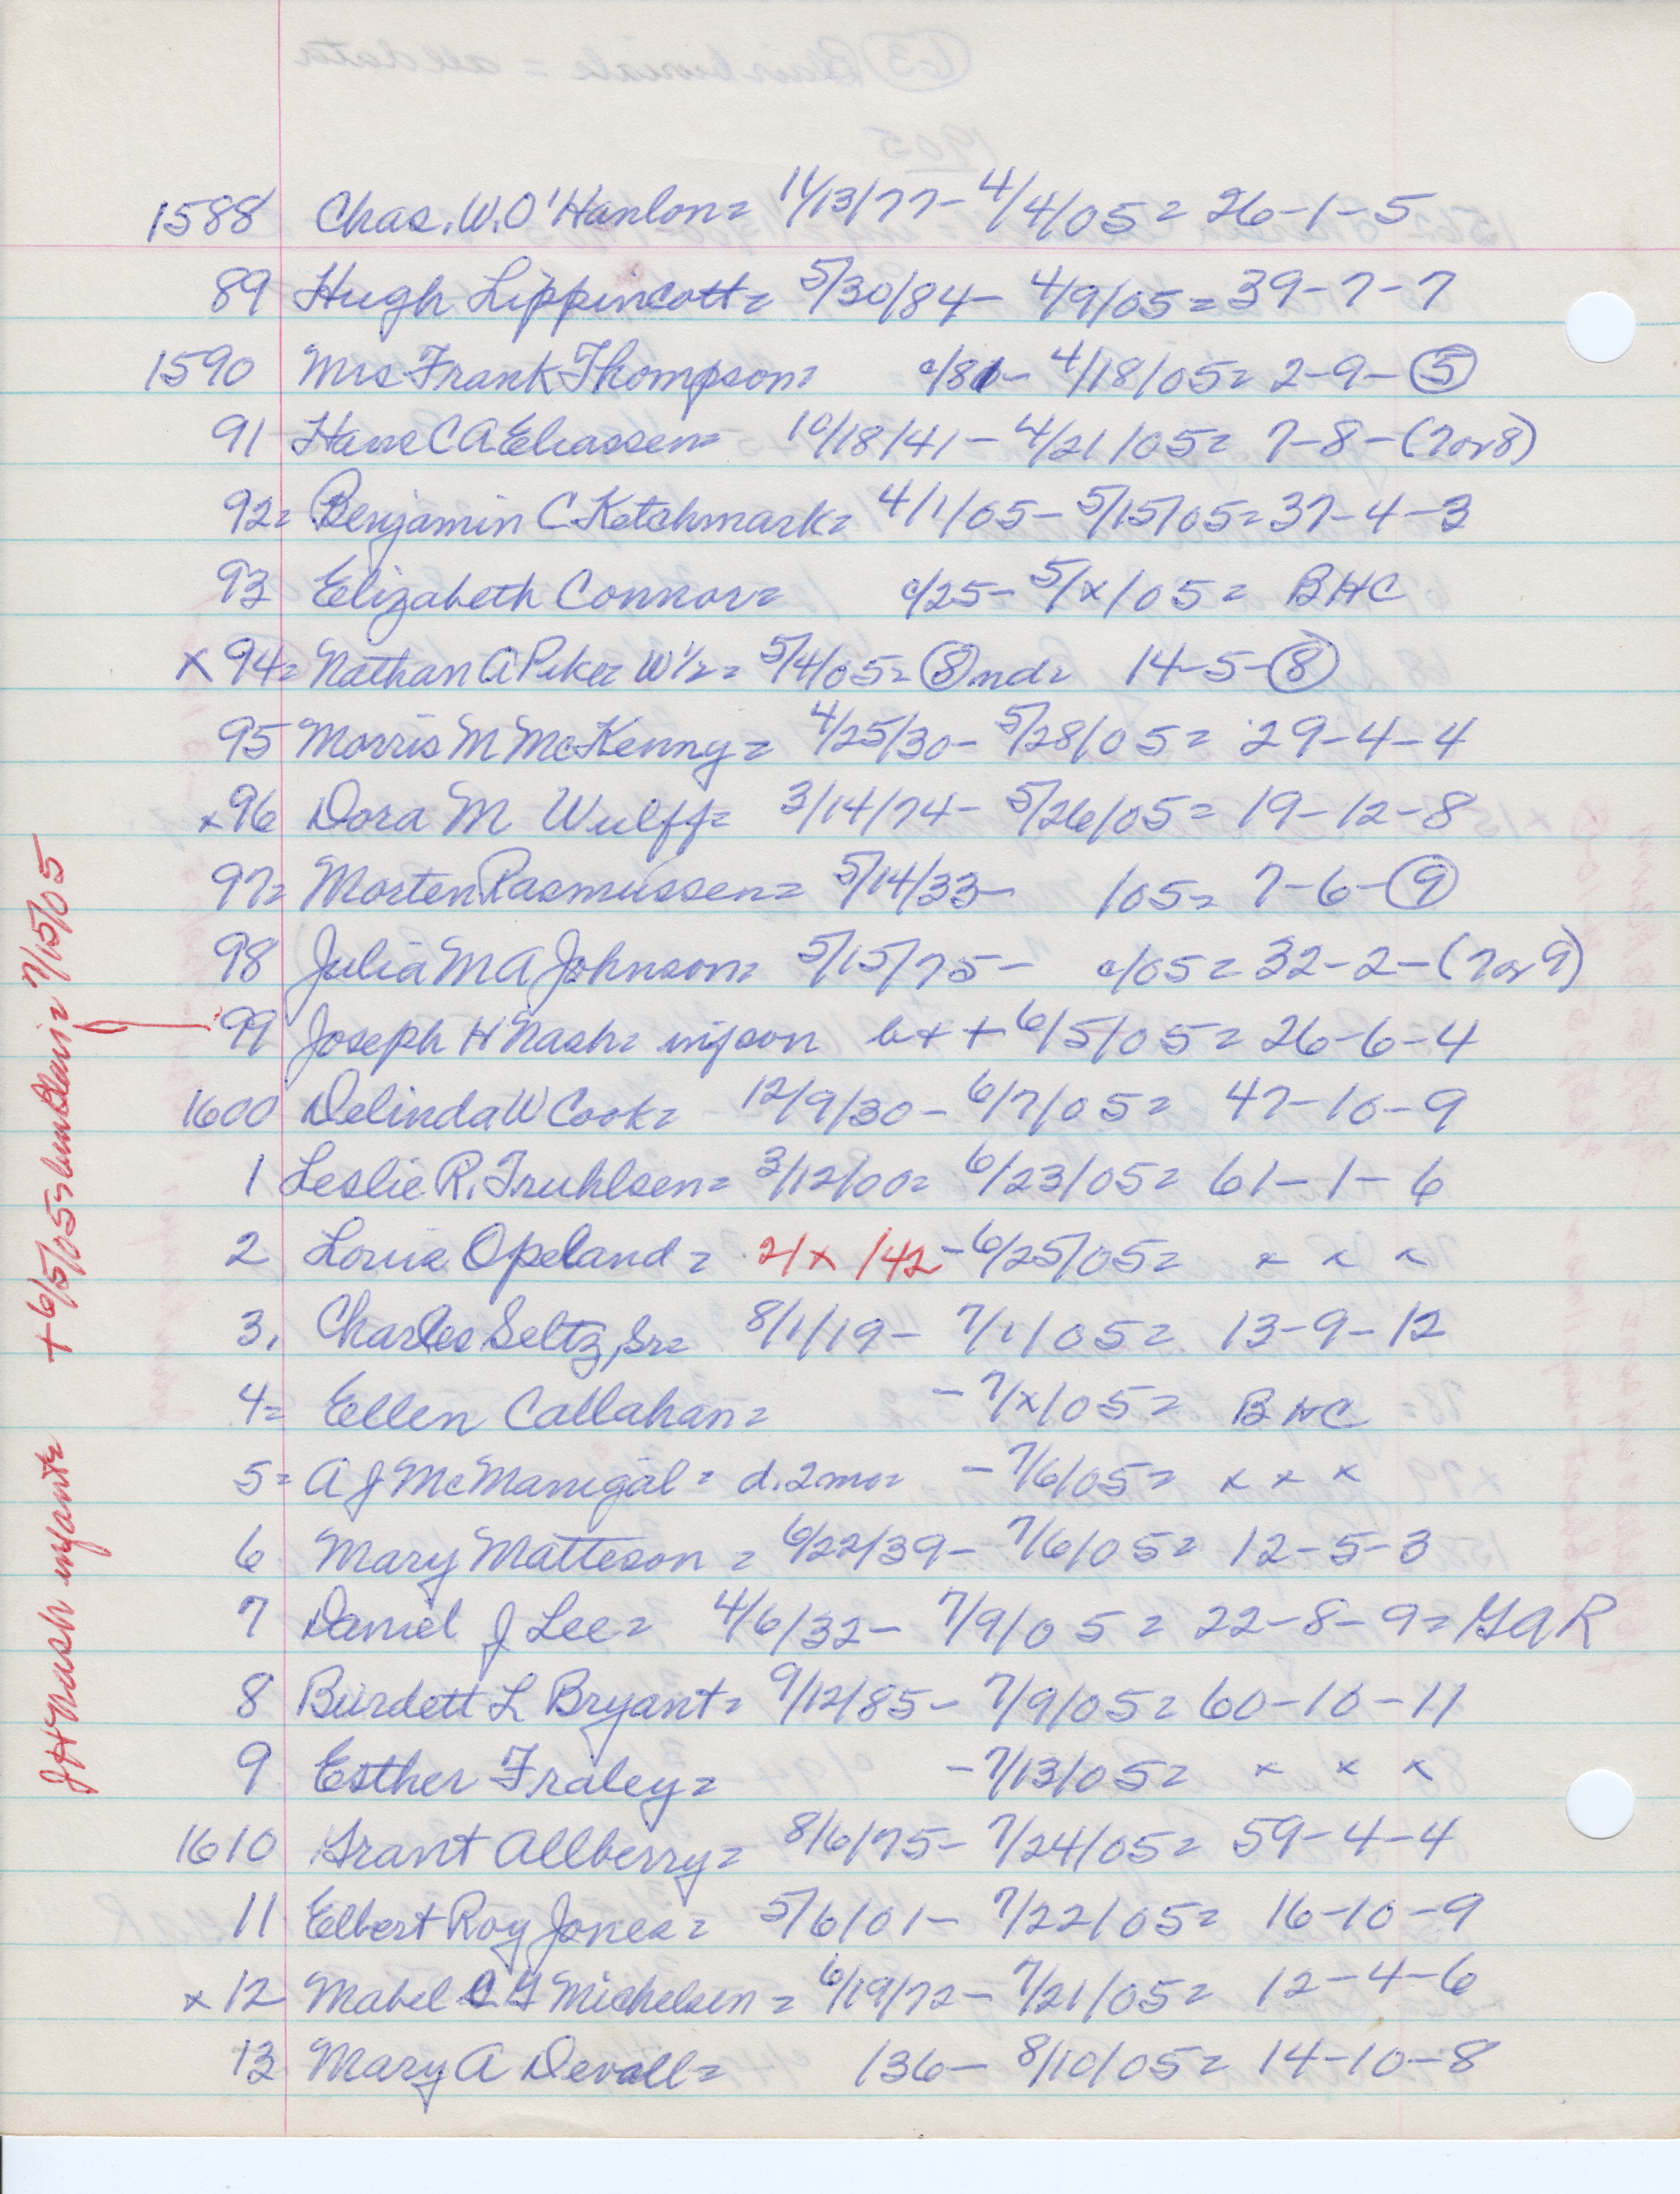 1588 Chas. W. O'Hanlon= 11/13/77- 4/4/05= 26-1-5
89 Hugh Lippincott= 5/30/84- 4/9/05= 39-7-7
1590 Mrs Frank Thompson= c/81- 4/18/05= 2-9-(5)
91 Hans C A Eliassen= 10/18/41- 4/21/05= 7-8-(7or8)
92= Benjamin C Ketchmark= 4/1/05- 5/15/05= 37-4-3
93 Elizabeth Connor= c/25- 5/x/05= BHC
x 94= Nathan A Pike= W 1/2= 5/4/05= (8) nd= 14-5-(8)
95 Morris M McKenny= 4/25/30- 5/28/05= 29-4-4
x 96 Dora M Wulff= 3/14/74- 5/26/05= 19-12-8
97= Morten Rasmussen= 5/14/33- /05= 7-6-(9)
98 Julia M A Johnson= 5/15/75- c/05= 32-2-(7or9)
99 Joseph H Nash= infson b++ 6/5/05= 26-6-4
1600 Delinda W Cook= 12/9/30- 6/7/05= 47-10-9
1 Leslie R. Truhlsen= 3/12/00= 6/23/05= 61-1-6
2 Louie Opeland= 2/x/42-6/25/05= x x x
3, Charles Seltz, Sr= 8/1/19- 7/1/05= 13-9-12
4= Ellen Callahan= -7/x/05= BHC
5= A J McManigal= d. 2mo= -7/6/05= x x x
6 Mary Matteson= 6/22/39- 7/6/05= 12-5-3
7 Daniel J Lee= 4/6/32- 7/9/05= 22-8-9= GAR
8 Burdett L Bryant= 9/12/85- 7/9/05= 60-10-11
9 Esther Fraley= -7/13/05= x x x
1610 Grant Allberry= 8/6/75- 7/24/05= 59-4-4
11 Elbert Roy Jones= 5/6/01- 7/22/05= 16-10-9
x 12 Mabel G Michelsen= 6/19/72- 7/21/05= 12-4-6
13 Mary A Devoll= /36- 8/10/05= 14-10-8
J H Nash infant= +6/5/05= bur Blair= 7/15/05